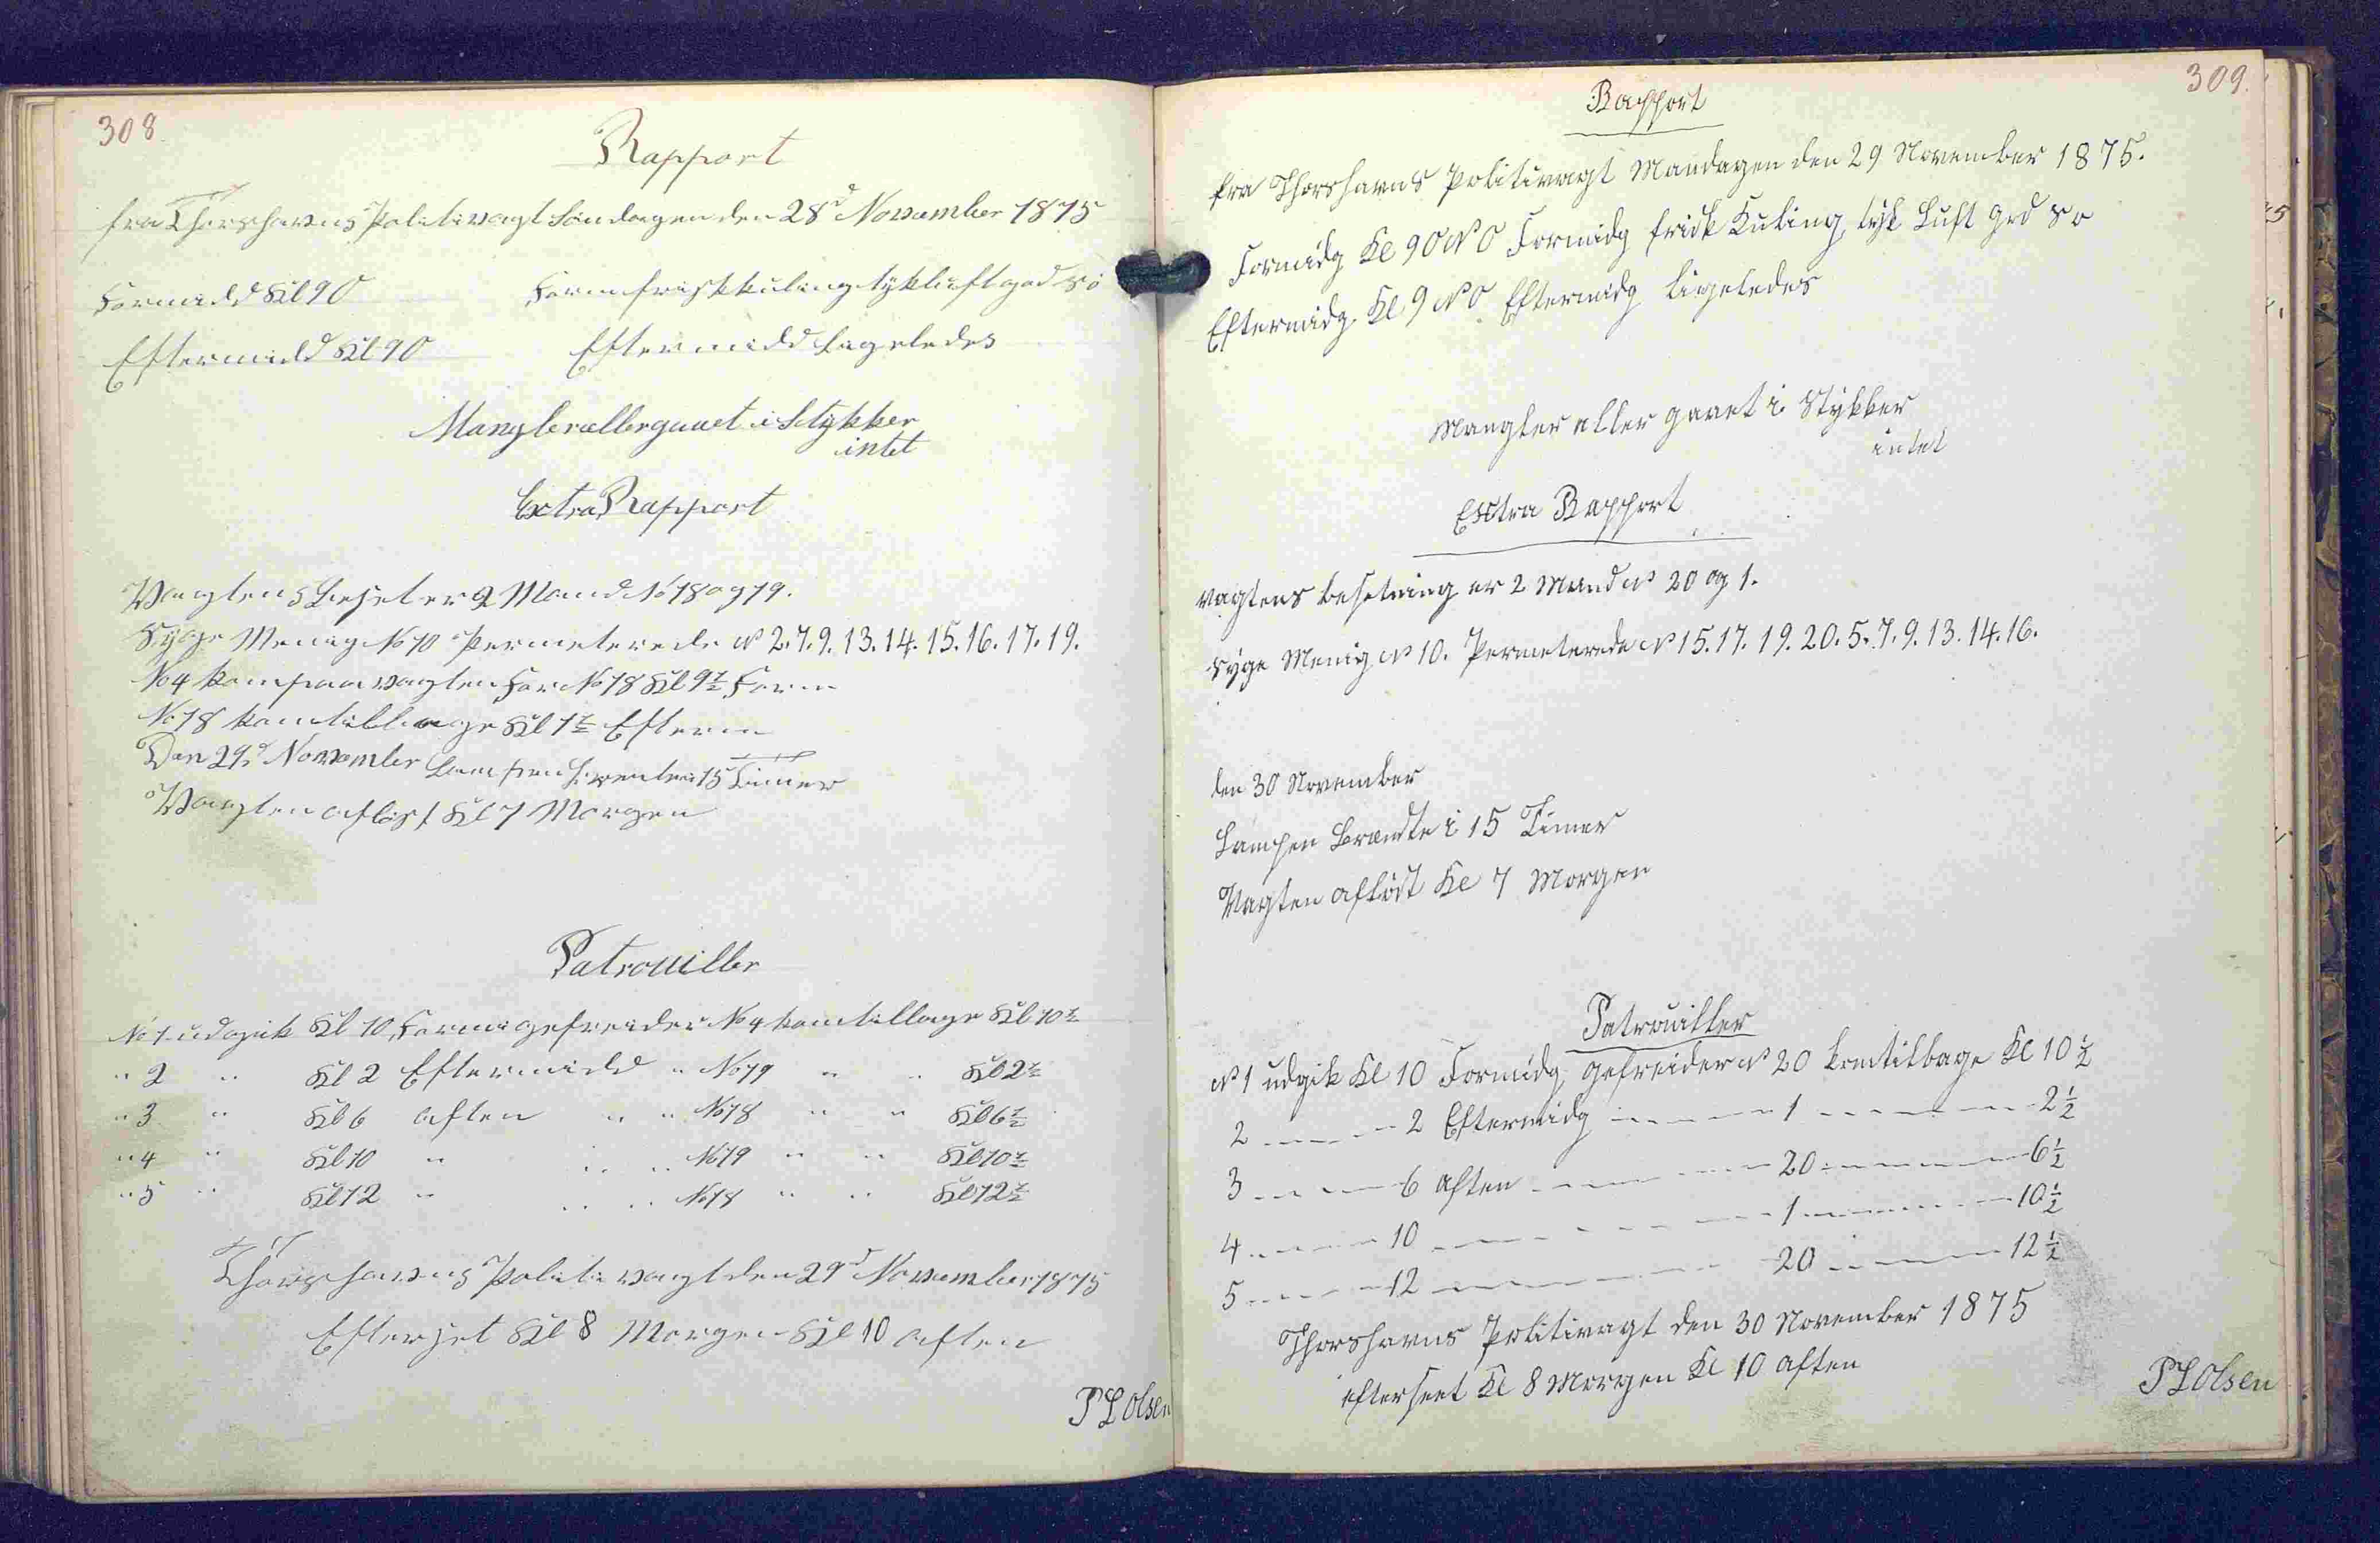 308
Rapport
fra Thorshavns Politivagt Söndagen den 28d November 1875
Formidd Kl 9 O Form frisk kuling tyk luft god Sö
Eftermidd Kl 9 O Eftermidd Ligeledes
Mangler eller gaaet i Stykker
intet
Extra Rapport
Vagtens Beset er 2 Mand No 18 og 19.
Syge Menig No 10 Permeterede No 2.7.9.13.14.15.16.17.19.
No 4 kom paa vagten For No 18 Kl 9½ Form
No 18 kom tilbage Kl 1½ Efterm
Den 29d November Lampen brændte i 15 Timer
Vagten aflöst Kl 7 Morgen
Patrouiller
No 1 udgik Kl 10 Formi gefreider No 4 kom tilbage Kl 10½
" 2 " Kl 2 Eftermidd " No 19 " " Kl 2½
" 3 " Kl 6 aften " " No 18 " " Kl 6½
" 4 " Kl 10 " " " No 19 " " Kl 10½
" 5 " Kl 12 " " " No 18 " " Kl 12½
Thorshavns Politivagt den 29d November 1875
Efterset Kl 8 Morgen Kl 10 aften
P L Olsen
309.
Rapport
fra Thorshavns Politivagt Mandagen den 29 November 1875.
Formidg Kl 9 O N O Formidg frisk Kuling tyk Luft god So
Eftermidg. Kl 9 N O Eftermidg ligeledes
Mangler eller gaaet i Stykker
intet
Extra Rapport
Vagtens besetning er 2 Mand No 20 og 1.
syge Menig No 10. Permeterede No 15.17.19.20.5.7.9.13.14.16.
den 30 November
Lampen Brændte i 15 Timer
Vagten aflöst Kl 7 Morgen
Patrouiller
No 1 udgik Kl 10 Formidg gefreider No 20 komtilbage Kl 10½
2 - - - 2 Eftermidg - - - 1 - - - 2½
3 - - - 6 Aften - - - 20 - - - 6½
4 - - - 10 - - - 1 - - - 10½
5 - - - 12 - - - 20 - - - 12½
Thorshavns Politivagt den 30 November 1875
efterseet Kl 8 Morgen Kl 10 Aften
P L Olsen